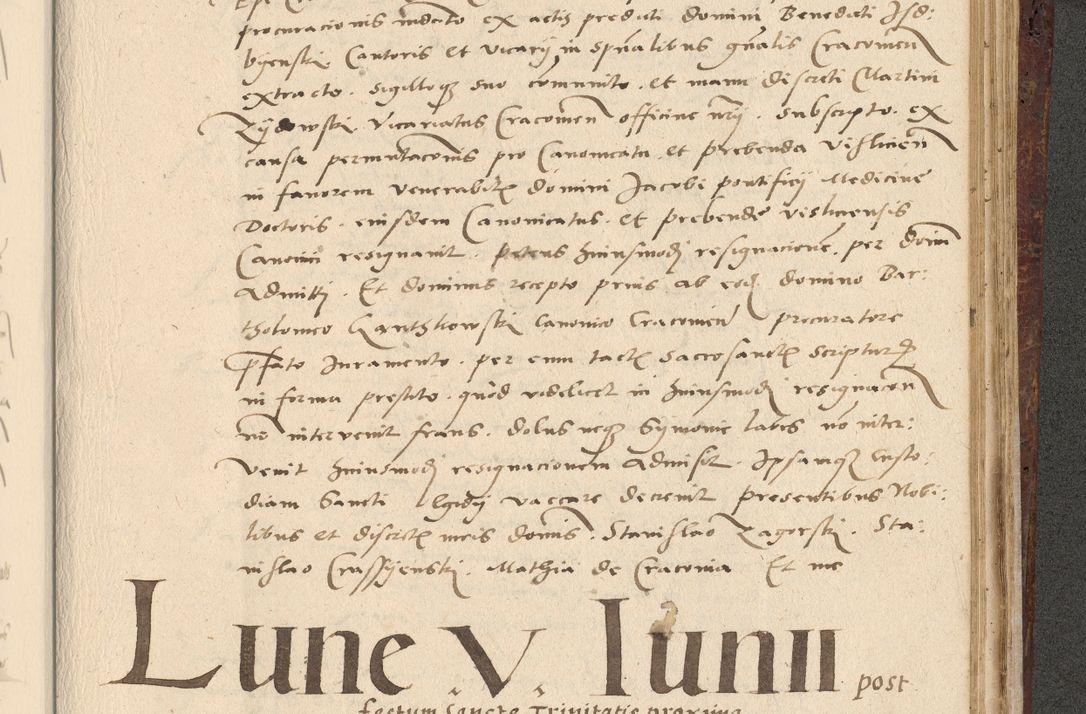 procuracionis mdcto ex actis predicti domini Benedicti Isd:
byenski Cantoris et vicarij in spũalibus gñalis Cracovien
extracto. sigilloq̃ suo cõmunito. et manu discreti Martini
Zijdowski. vicariatus Cracovien officine nrij. subscripto. ex
causa permutacõnis pro Canonicatu. et prebenda vislicien
in favorem venerabil domini Jacobi pontificij Medicine
Doctoris. eiusdem Canonicatus. et prebende visliciensis
Canonici resignavit. Petens huiusmodj resignacionẽ. per domĩ
Admittj. Et dominus recepto prius ab eod domino Bar:
tholomeo Ganthkowskj Canonico Cracovien procuratore
p̃fato Iuramento. per eum tact sacrosanct scripturꝝ
in forma prestito. quod videlicet in huiusmodj resignacoñ
nõ intervenit fraus. dolus neq̃ Symonie labes nõ inter:
venit huiusmodj resignacionem admisit. Ipsamq̃ Custo:
diam Sancti Egidij vaccare decrevit presentibus Nobi:
libus et discret viris domĩs. Stanislao Zagorskj. Sta:
nislao Crassyenskj. Mathia de Cracovia Et me
Lune V. Iunii post
festum sancte Trinitatis proxima